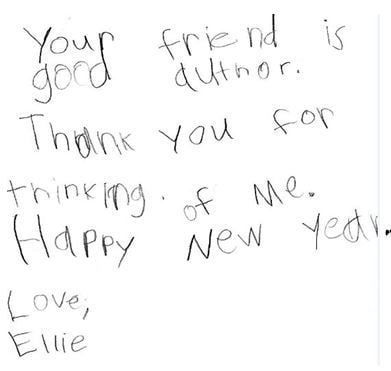 Your friend is
good author.
Thank you for
thinking. of me.
Happy New Year.
Love,
Ellie